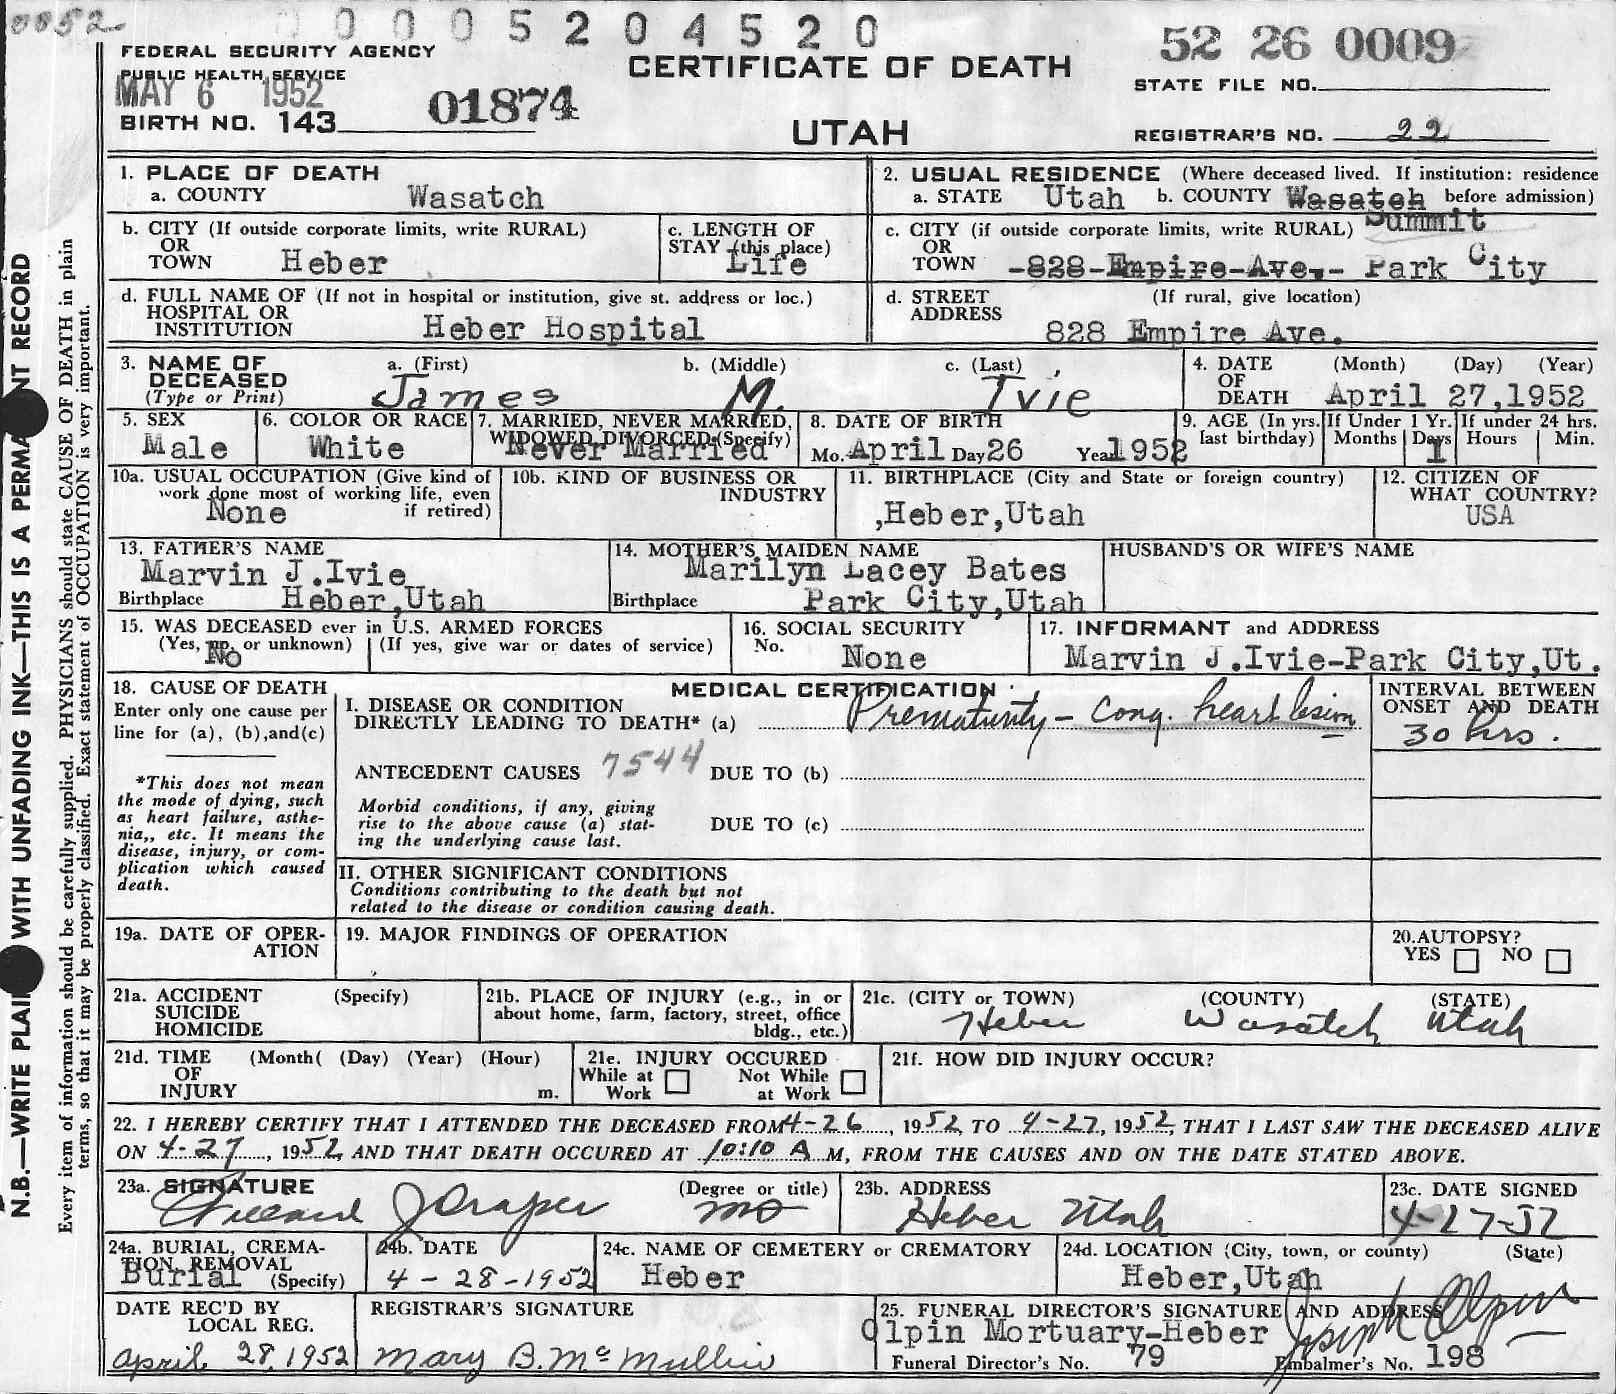 0052
0 0 0 5 2 0 4 5 2 0
52 26 0009
FEDERAL SECURITY AGENCY
PUBLIC HEALTH SERVICE
CERTIFICATE OF DEATH
STATE FILE NO.
MAY 6 1952
01874
BIRTH NO. 143
UTAH
REGISTRAR'S NO. 22
1. PLACE OF DEATH
a. COUNTY Wasatch
2. USUAL RESIDENCE (Where deceased lived. If institution: residence
a. STATE Utah b. COUNTY Wasatch before admission)
Summit
b. CITY (If outside corporate limits, write RURAL)
OR
TOWN Heber
c. LENGTH OF
STAY (this place)
Life
c. CITY (if outside corporate limits, write RURAL)
OR
TOWN -828-Empire-Ave.- Park City
d. FULL NAME OF (If not in hospital or institution, give st. address or loc.)
HOSPITAL OR
INSTITUTION Heber Hospital
d. STREET (If rural, give location)
ADDRESS 828 Empire Ave.
3. NAME OF a. (First) b. (Middle) c. (Last)
DECEASED
(Type or Print) James M. Ivie
4. DATE (Month) (Day) (Year)
OF
DEATH April 27,1952
5. SEX
Male
6. COLOR OR RACE
White
7. MARRIED, NEVER MARRIED,
WIDOWED, DIVORCED (Specify)
Never Married
8. DATE OF BIRTH
Mo. April Day 26 Year 1952
9. AGE (In yrs.
last birthday)
If Under 1 Yr.
Months Days
1
If under 24 hrs.
Hours Min.
10a. USUAL OCCUPATION (Give kind of
work done most of working life, even
None if retired)
10b. KIND OF BUSINESS OR
INDUSTRY
11. BIRTHPLACE (City and State or foreign country)
,Heber,Utah
12. CITIZEN OF
WHAT COUNTRY?
USA
13. FATHER'S NAME
Marvin J.Ivie
Birthplace Heber,Utah
14. MOTHER'S MAIDEN NAME
Marilyn Lacey Bates
Birthplace Park City,Utah
HUSBAND'S OR WIFE'S NAME
15. WAS DECEASED ever in U.S. ARMED FORCES
(Yes, no, or unknown) (If yes, give war or dates of service)
No
16. SOCIAL SECURITY
No. None
17. INFORMANT and ADDRESS
Marvin J.Ivie-Park City,Ut.
18. CAUSE OF DEATH
Enter only one cause per
line for (a), (b),and(c)
*This does not mean
the mode of dying, such
as heart failure, asthe-
nia,, etc. It means the
disease, injury, or com-
plication which caused
death.
MEDICAL CERTIFICATION
I. DISEASE OR CONDITION
DIRECTLY LEADING TO DEATH* (a) Prematurity - cong. heart lesion
INTERVAL BETWEEN
ONSET AND DEATH
30 hrs.
ANTECEDENT CAUSES 7544 DUE TO (b)
Morbid conditions, if any, giving
rise to the above cause (a) stat-
ing the underlying cause last.
DUE TO (c)
II. OTHER SIGNIFICANT CONDITIONS
Conditions contributing to the death but not
related to the disease or condition causing death.
19a. DATE OF OPER-
ATION
19. MAJOR FINDINGS OF OPERATION
20.AUTOPSY?
YES NO
21a. ACCIDENT (Specify)
SUICIDE
HOMICIDE
21b. PLACE OF INJURY (e.g., in or
about home, farm, factory, street, office
bldg., etc.)
21c. (CITY or TOWN) (COUNTY) (STATE)
Heber Wasatch Utah
21d. TIME (Month( (Day) (Year) (Hour)
OF
INJURY m.
21e. INJURY OCCURED
While at Not While
Work at Work
21f. HOW DID INJURY OCCUR?
22. I HEREBY CERTIFY THAT I ATTENDED THE DECEASED FROM 4-26, 1952, TO 4-27, 1952, THAT I LAST SAW THE DECEASED ALIVE
ON 4-27, 1952, AND THAT DEATH OCCURED AT 10:10 A M, FROM THE CAUSES AND ON THE DATE STATED ABOVE.
23a. SIGNATURE (Degree or title)
Willard J Draper MD
23b. ADDRESS
Heber Utah
23c. DATE SIGNED
4-27-52
24a. BURIAL, CREMA-
TION, REMOVAL
Burial (Specify)
24b. DATE
4-28-1952
24c. NAME OF CEMETERY or CREMATORY
Heber
24d. LOCATION (City, town, or county) (State)
Heber,Utah
DATE REC'D BY
LOCAL REG.
april 28, 1952
REGISTRAR'S SIGNATURE
Mary B. McMullin
25. FUNERAL DIRECTOR'S SIGNATURE AND ADDRESS
Olpin Mortuary-Heber Joseph Olpin
Funeral Director's No. 79 Embalmer's No. 198
N.B.—WRITE PLAINLY WITH UNFADING INK—THIS IS A PERMANENT RECORD
Every item of information should be carefully supplied. PHYSICIANS should state CAUSE OF DEATH in plain
terms, so that it may be properly classified. Exact statement of OCCUPATION is very important.